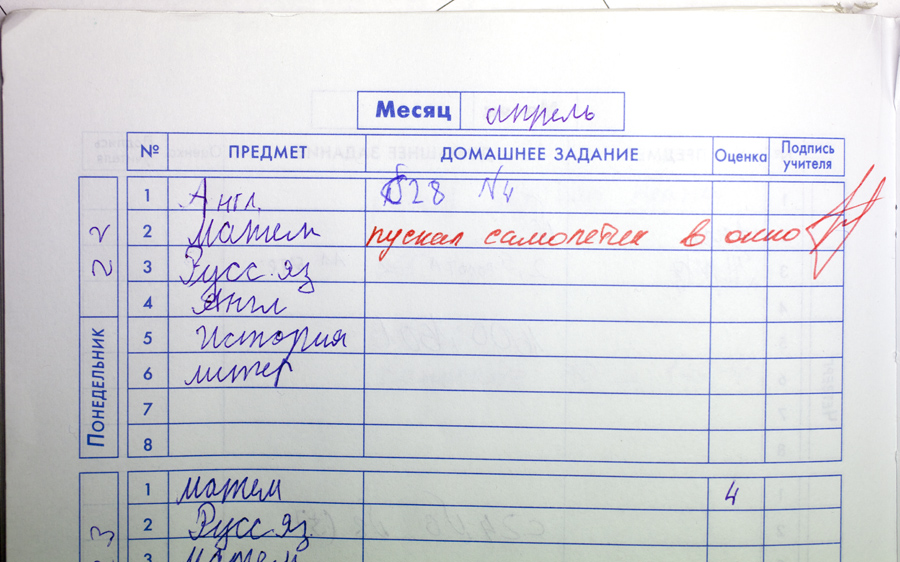 Месяц апрель
№ ПРЕДМЕТ ДОМАШНЕЕ ЗАДАНИЕ Оценка Подпись учителя
22
Понедельник
1 Англ. с28 №4
2 Матем пускал самолетик в окно
3 Русс. яз
4 Англ
5 История
6 литер
7
8
23
1 матем 4
2 Русс яз.
3 матем